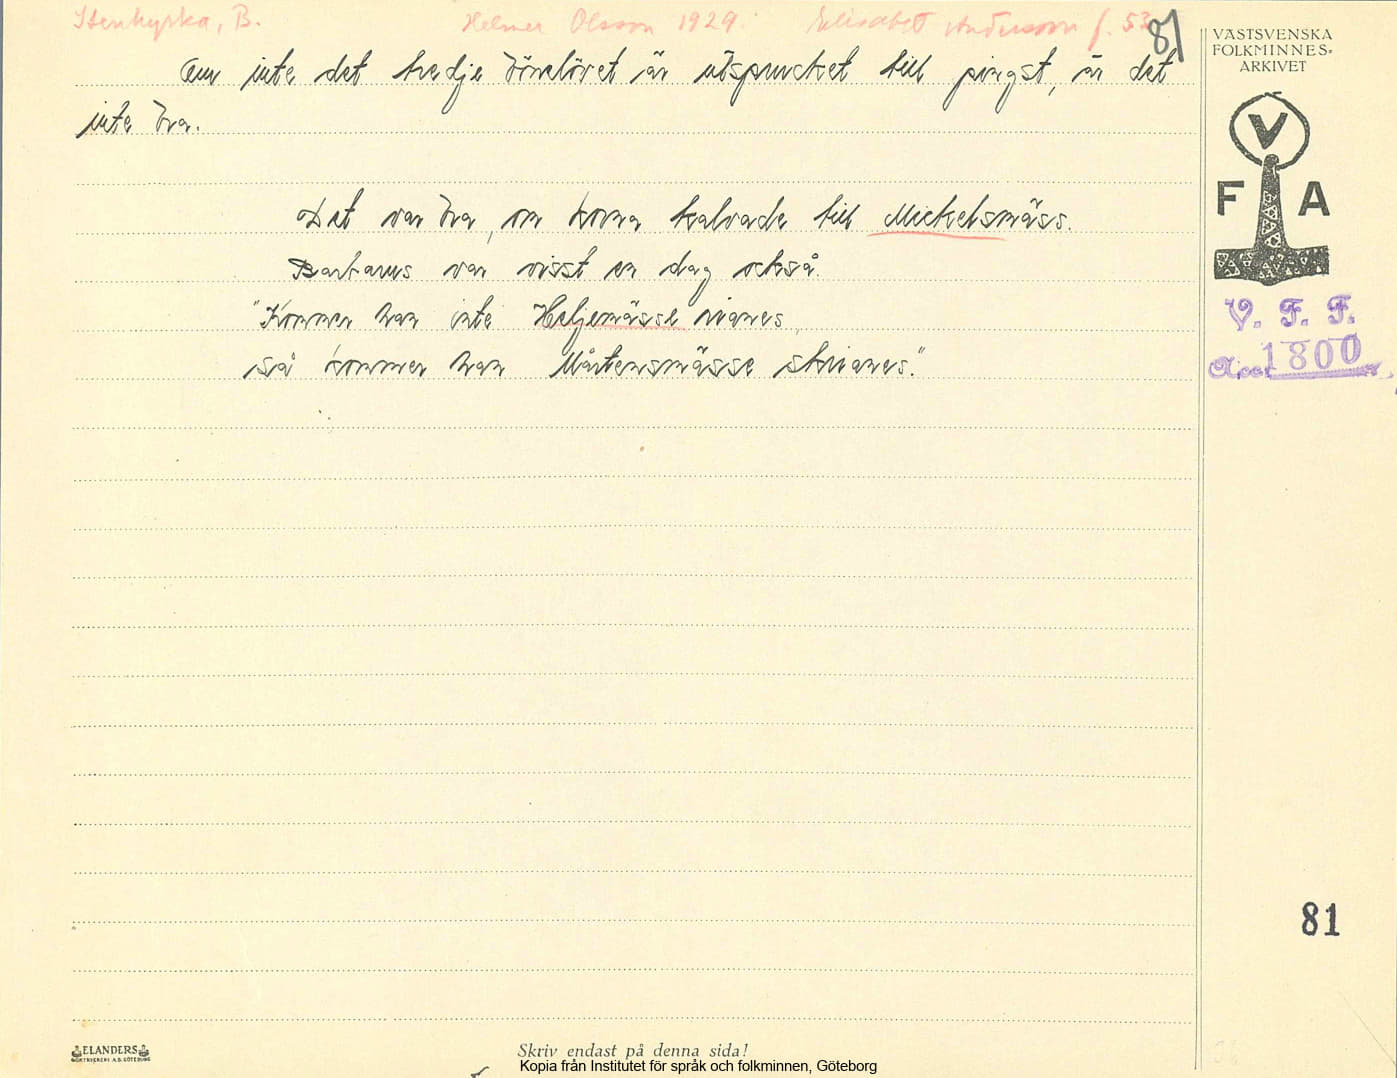 Stenkyrka, B. Helmer Olsson 1929. Elisabet Andersson f. 53 81
Om inte det tredje bönelövet är utsprucket till pingst, är det
inte bra.
Det var bra, om korna kalvade till Mickelsmäss.
Barbarus var visst en dag också.
"Kommer han inte Heljemässe
så kommer han Mårtensmässe
VÄSTSVENSKA
FOLKMINNES-
ARKIVET
V
F A
V. F. F.
Acc. 1800
81
ELANDERS
Skriv endast på denna sida!
Kopia från Institutet för språk och folkminnen, Göteborg